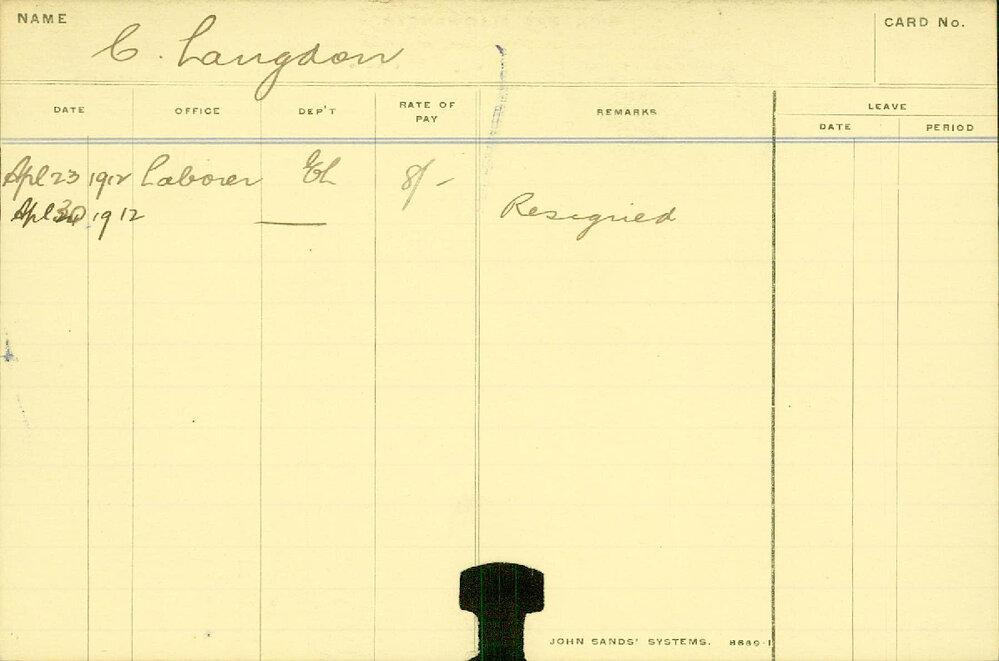 NAME C. Langdon CARD No.
DATE OFFICE DEP'T RATE OF PAY REMARKS LEAVE
DATE PERIOD
Apl 23 1912 Laborer El 8/-
Apl 30 1912 —— Resigned
JOHN SANDS' SYSTEMS. 8689-1